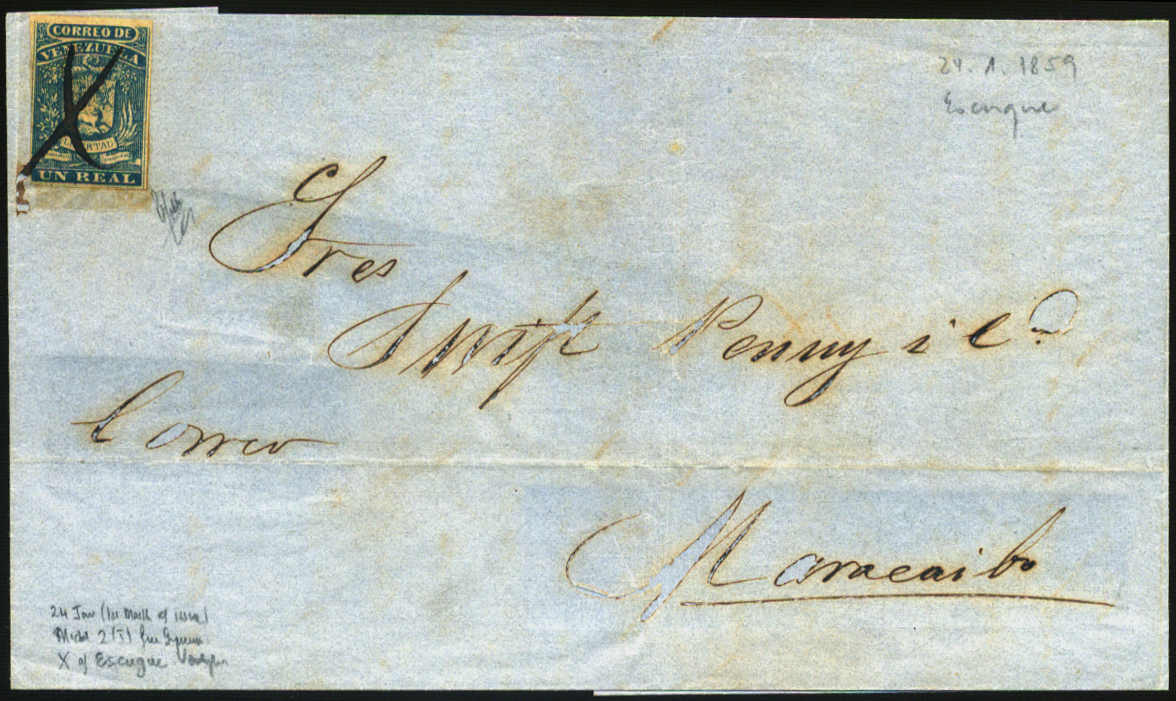 CORREO DE
VENEZUELA
LIBERTAD
UN REAL
24. 1. 1859
Escuque
Sres
Swift Penny i Cª
Correo
Maracaibo
24 Jan (1st Month of issue)
Michel 2 (I)
X of Escuque